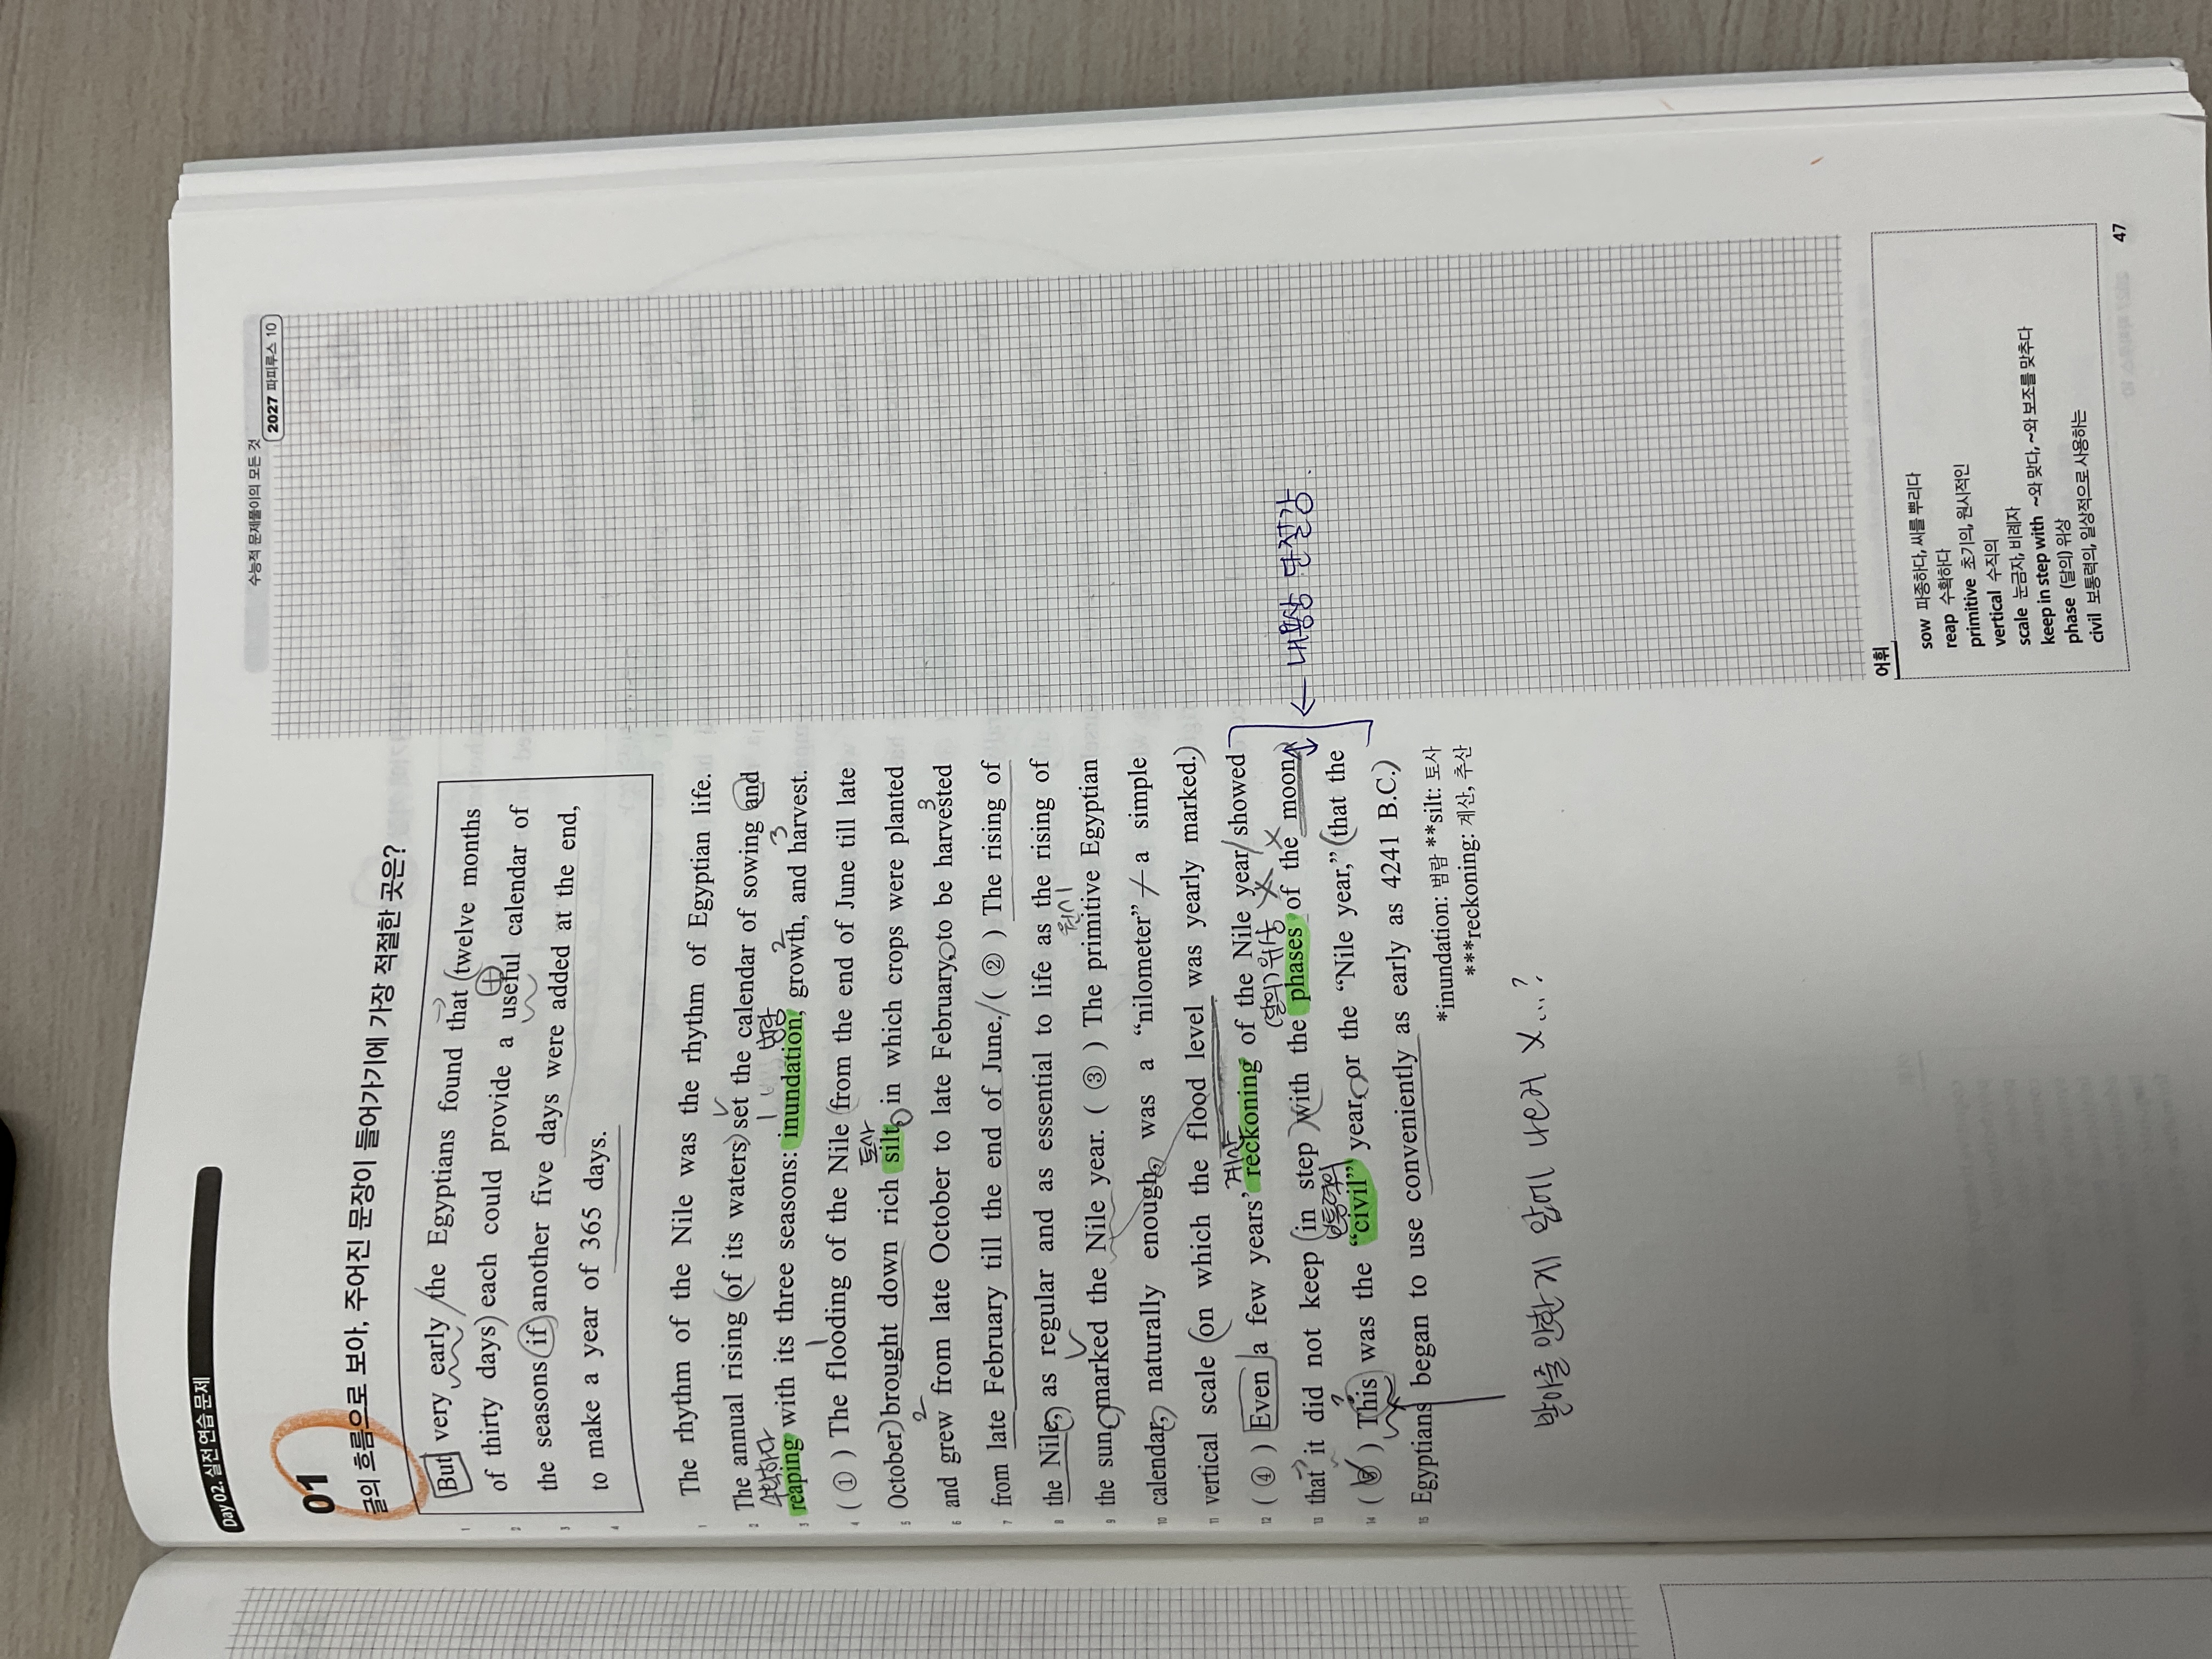 수능적 문제풀이의 모든 것
2027 파피루스 10
Day 02. 실전 연습 문제
01
글의 흐름으로 보아, 주어진 문장이 들어가기에 가장 적절한 곳은?
1 But very early the Egyptians found that twelve months
2 of thirty days each could provide a useful calendar of
3 the seasons if another five days were added at the end,
4 to make a year of 365 days.
1 The rhythm of the Nile was the rhythm of Egyptian life.
2 The annual rising of its waters set the calendar of sowing and
수확하다 1 범람 2 3
3 reaping with its three seasons: inundation, growth, and harvest.
4 ( ① ) The flooding of the Nile from the end of June till late
토사
5 October brought down rich silt, in which crops were planted
2 3
6 and grew from late October to late February, to be harvested
7 from late February till the end of June. ( ② ) The rising of
8 the Nile, as regular and as essential to life as the rising of
원시
9 the sun, marked the Nile year. ( ③ ) The primitive Egyptian
10 calendar, naturally enough, was a “nilometer” — a simple
11 vertical scale on which the flood level was yearly marked.
계산
12 ( ④ ) Even a few years’ reckoning of the Nile year showed
(달의) 위상 X X
13 that it did not keep in step with the phases of the moon.
← 내용상 단절감.
보통력의
14 ( ⑤ ) This was the “civil” year, or the “Nile year,” that the
15 Egyptians began to use conveniently as early as 4241 B.C.
*inundation: 범람 **silt: 토사
***reckoning: 계산, 추산
받아줄 만한 게 앞에 나온게 X...?
어휘
sow 파종하다, 씨를 뿌리다
reap 수확하다
primitive 초기의, 원시적인
vertical 수직의
scale 눈금자, 비례자
keep in step with ~와 맞다, ~와 보조를 맞추다
phase (달의) 위상
civil 보통력의, 일상적으로 사용하는
47